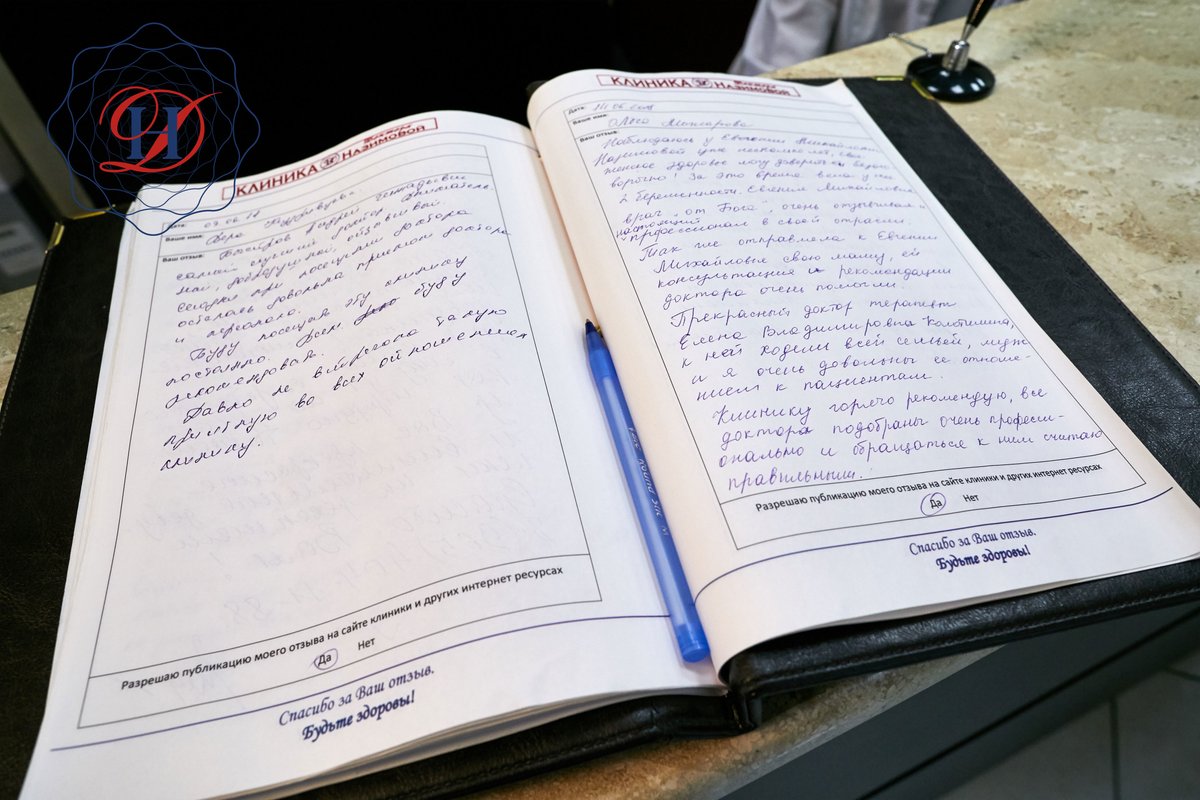 КЛИНИКА
НАЗИМОВОЙ
Дата: 07.06.18
Ваше имя: Вера
Ваш отзыв:
самый лучший доктор. Вниматель-
ный, добродушный, отзывчивый.
Сегодня при посещении доктора
осталась довольна приемом доктора
и персонала.
Буду посещать эту клинику
постоянно. Всем буду
рекомендовать.
Давно не встречала такую
приятную во всех отношениях
клинику.
Разрешаю публикацию моего отзыва на сайте клиники и других интернет ресурсах
Да Нет
Спасибо за Ваш отзыв.
Будьте здоровы!
КЛИНИКА
НАЗИМОВОЙ
Дата:
Ваше имя: Ольга
Ваш отзыв: Наблюдаюсь у Евгении Михайловны
уже несколько лет, свое
женское здоровье могу доверить ей
! За это время вела у меня
2 беременности. Евгения Михайловна
врач "от Бога", очень отзывчивая и
настоящий
профессионал в своей отрасли.
Так же отправляла к Евгении
Михайловне свою маму, ей
консультация и рекомендации
доктора очень помогли.
Прекрасный доктор терапевт
Елена Владимировна
к ней ходим всей семьёй, муж
и я очень довольны её отноше-
нием к пациентам.
Клинику горячо рекомендую, все
доктора подобраны очень професси-
онально и обращаться к ним считаю
правильным.
Разрешаю публикацию моего отзыва на сайте клиники и других интернет ресурсах
Да Нет
Спасибо за Ваш отзыв.
Будьте здоровы!